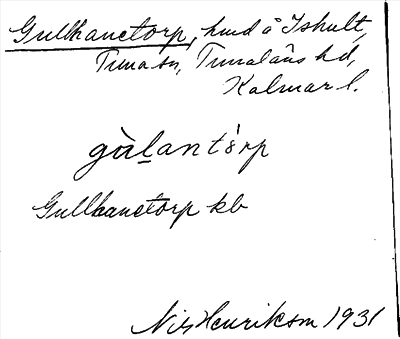 Gullhanetorp, hmd å Ishult,
Tuna sn, Tunaläns hd,
Kalmar l.
gàḻant ṣrp
Gullhanetorp kb
Nils Henriksson 1931